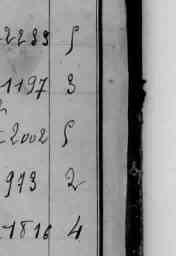 2299 5
1197 3
2002 5
973 2
1816 4